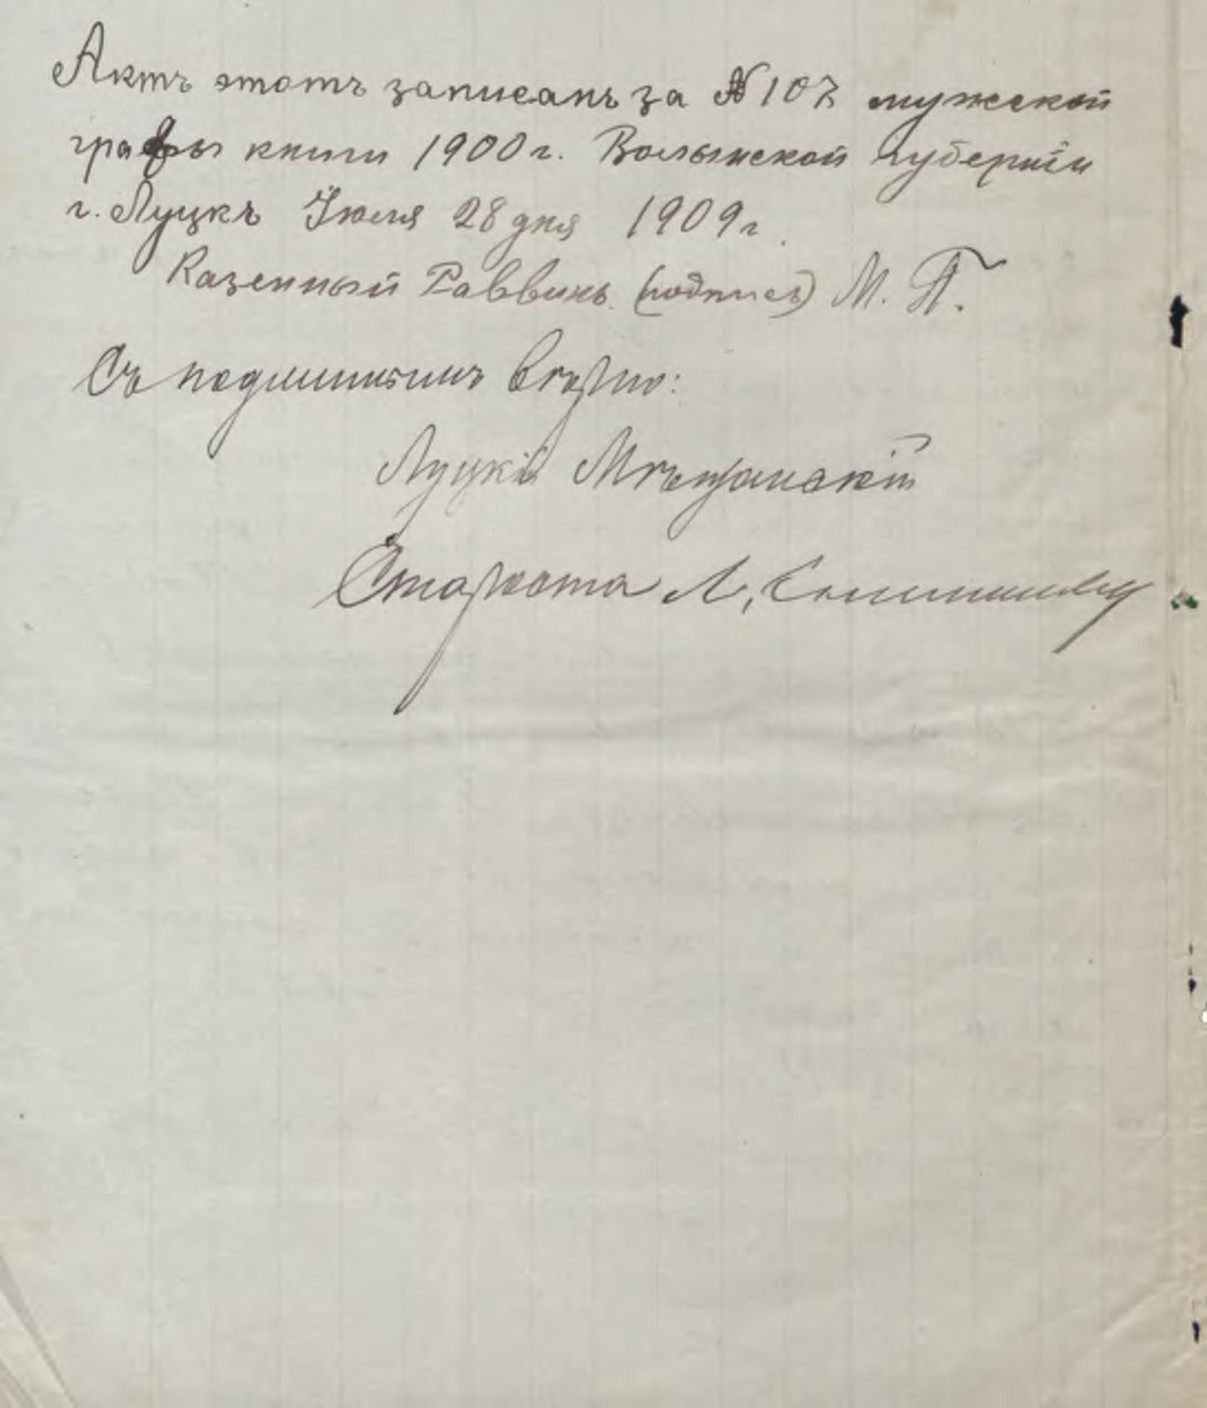 Актъ этотъ записанъ за № 107 мужской
графы книги 1900 г. Волынской губерніи
г. Луцкъ Іюля 28 дня 1909 г.
Казенный Раввинъ (подпись) М. П.
Съ подлиннымъ вѣрно:
Луцкій Мѣщанскій
Староста Л.